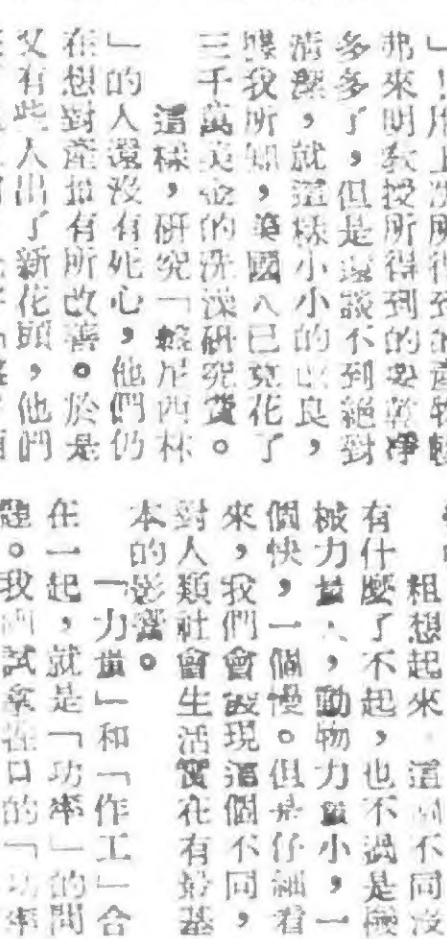 弗來明教授所得到的要乾淨
多多了，但是還談不到絕對
清潔，就這樣小小的改良，
據我所知，美國人已竟花了
三千萬美金的洗澡研究費。
這樣，研究「盤尼西林
」的人還沒有死心，他們仍
在想對產量有所改善。於是
又有些人出了新花頭，他們
粗想起來 這 不同沒
有什麼了不起，也不過是機
械力量大，動物力量小，一
個快，一個慢。但是仔細看
來，我們會發現這個不同，
對人類社會生活實在有最基
本的影響。
「力量」和「作工」合
在一起，就是「功率」的問
題。我們試拿 口的「功率